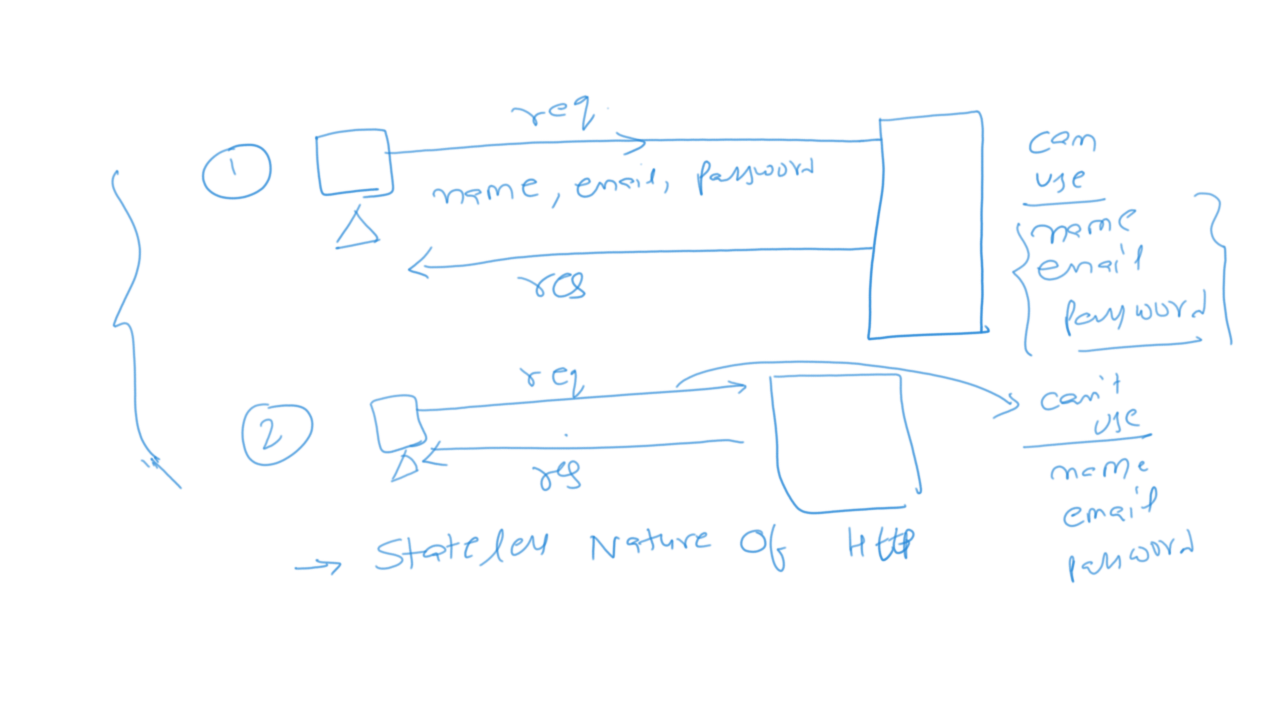 req
1
name, email, password
res
can
use
name
email
password
req
2
res
can't
use
name
email
password
→ Stateless Nature Of Http